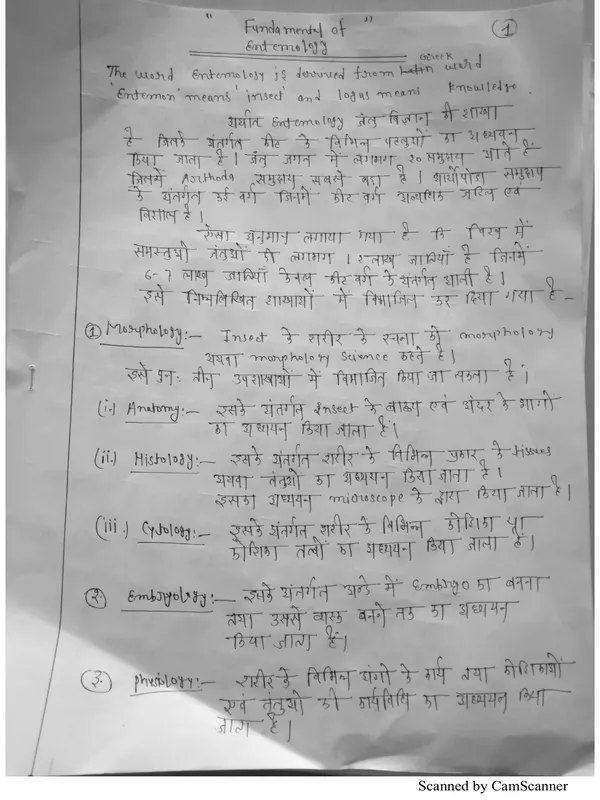 " Fundamental of "
Entemology
1
Greek
The word Entemology is derived from Latin word
'Entemon' means 'insect' and logus means knowledge.
अर्थात Entemology जंतु विज्ञान की शाखा
है जिसके अंतर्गत कीट के विभिन्न पहलुओं का अध्ययन
किया जाता है। जंतु जगत में लगभग २० समुदाय आते हैं
जिसमें Arthoda समुदाय सबसे बडा है। आर्थोपोडा समुदाय
के अंतर्गत कई वर्ग जिनमें कीट वर्ग अत्यधिक जटिल एवं
विशाल है।
ऐसा अनुमान लगाया गया है कि विश्व में
समस्त जंतुओं की लगभग । जातियाँ है जिनमें
6-7 लाख जातियाँ केवल कीट वर्ग के अंतर्गत आती है।
इसे निम्नलिखित शाखाओं में विभाजित कर दिया गया है -
① Morphology:— Insect के शरीर के रचना को morphology
अथवा morpholory science कहते है।
इसे पुनः तीन उपशाखाओं में विभाजित किया जा सकता है:
(i.) Anatomy:— इसके अंतर्गत insect के बाह्य एवं अंदर के भागो
का अध्ययन किया जाता है।
(ii.) Histology:— इसके अंतर्गत शरीर के विभिन्न प्रकार के tissues
अथवा तंतुओं का अध्ययन किया जाता है।
इसका अध्ययन microscope के द्वारा किया जाता है।
(iii.) Cytology:— इसके अंतर्गत शरीर के विभिन्न कोशिका
कोशिका तत्वों का अध्ययन किया जाता है।
२. Embryology:— इसके अंतर्गत अन्डे में Embryo का बनना
तथा उससे व्यस्क बनने तक का अध्ययन
किया जाता है।
३. physiology:— शरीर के विभिन्न अंगो के कार्य तथा कोशिकाओं
एवं तंतुओं की कार्यविधि का अध्ययन किया
जाता है।
Scanned by CamScanner